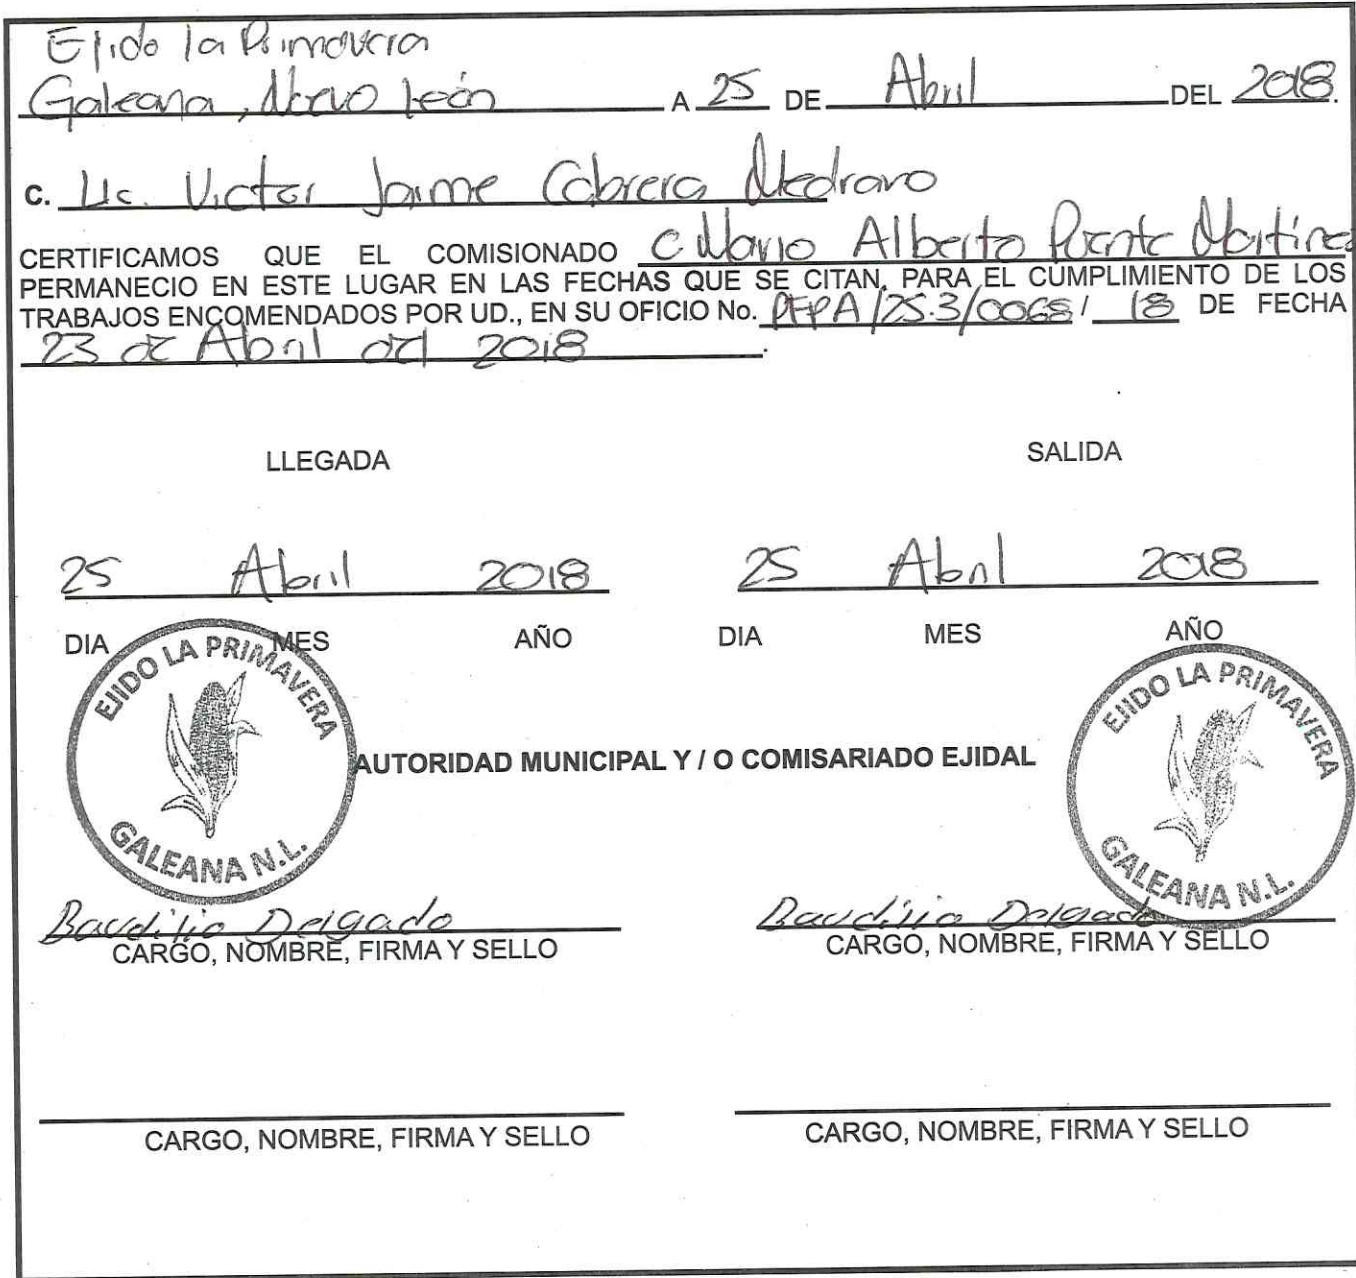 Ejido la Primavera
Galeana, Nuevo León A 25 DE Abril DEL 2018.
C. Lic. Victor Jaime Cabrera Medrano
CERTIFICAMOS QUE EL COMISIONADO C Mario Alberto Puente Martinez
PERMANECIO EN ESTE LUGAR EN LAS FECHAS QUE SE CITAN, PARA EL CUMPLIMIENTO DE LOS
TRABAJOS ENCOMENDADOS POR UD., EN SU OFICIO No. PFPA/25.3/0068/ 18 DE FECHA
23 de Abril del 2018.
LLEGADA SALIDA
25 Abril 2018 25 Abril 2018
DIA MES AÑO DIA MES AÑO
EJIDO LA PRIMAVERA EJIDO LA PRIMAVERA
AUTORIDAD MUNICIPAL Y / O COMISARIADO EJIDAL
GALEANA N.L. GALEANA N.L.
Baudilio Delgado Baudilio Delgado
CARGO, NOMBRE, FIRMA Y SELLO CARGO, NOMBRE, FIRMA Y SELLO
CARGO, NOMBRE, FIRMA Y SELLO CARGO, NOMBRE, FIRMA Y SELLO